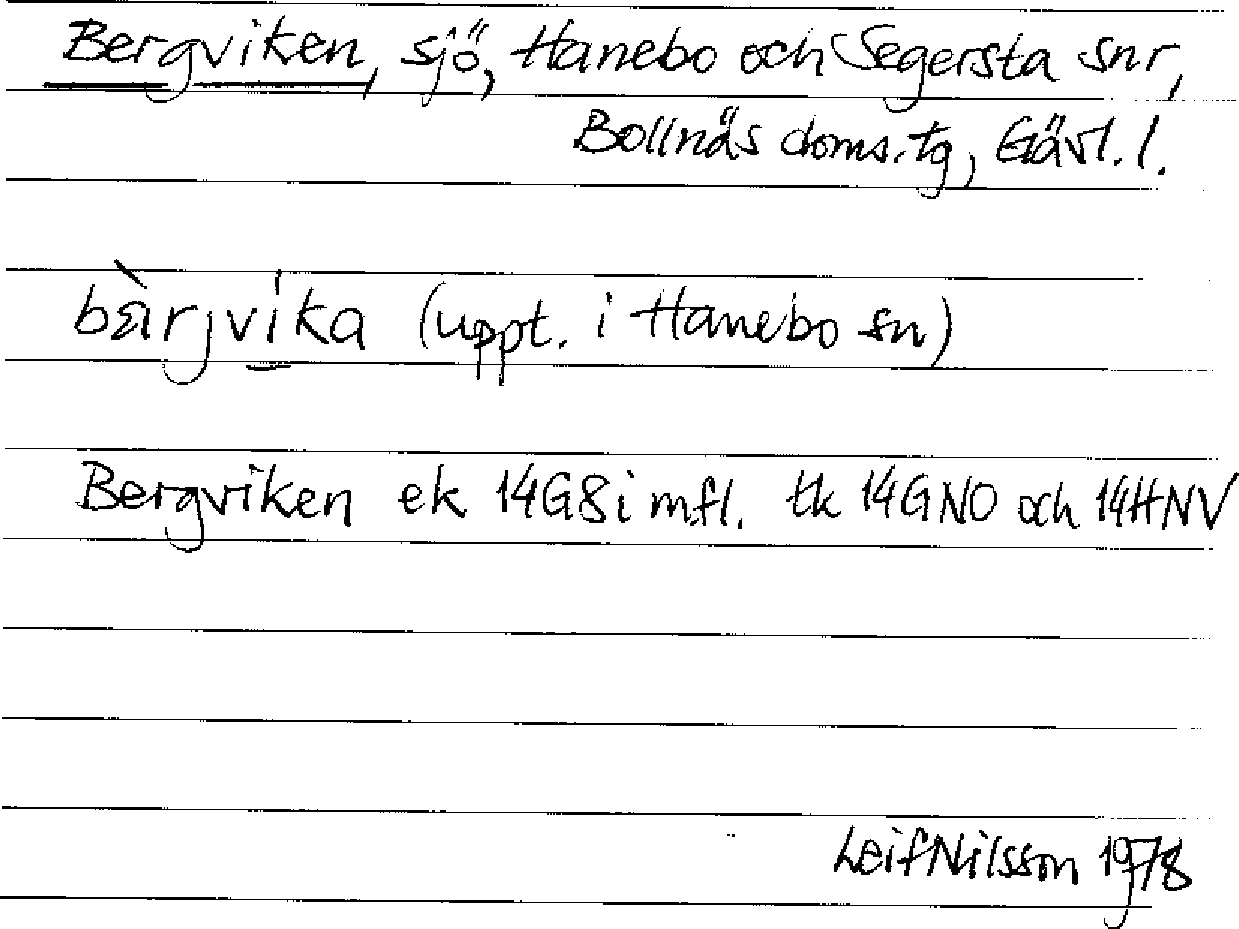 Bergviken, sjö, Hanebo och Segersta snr,
Bollnäs doms.tg, Gävl. l.
bæ̀rjvika (uppt. i Hanebo sn)
Bergviken ek 14G8i mfl. tk 14GNO och 14HNV
Leif Nilsson 1978